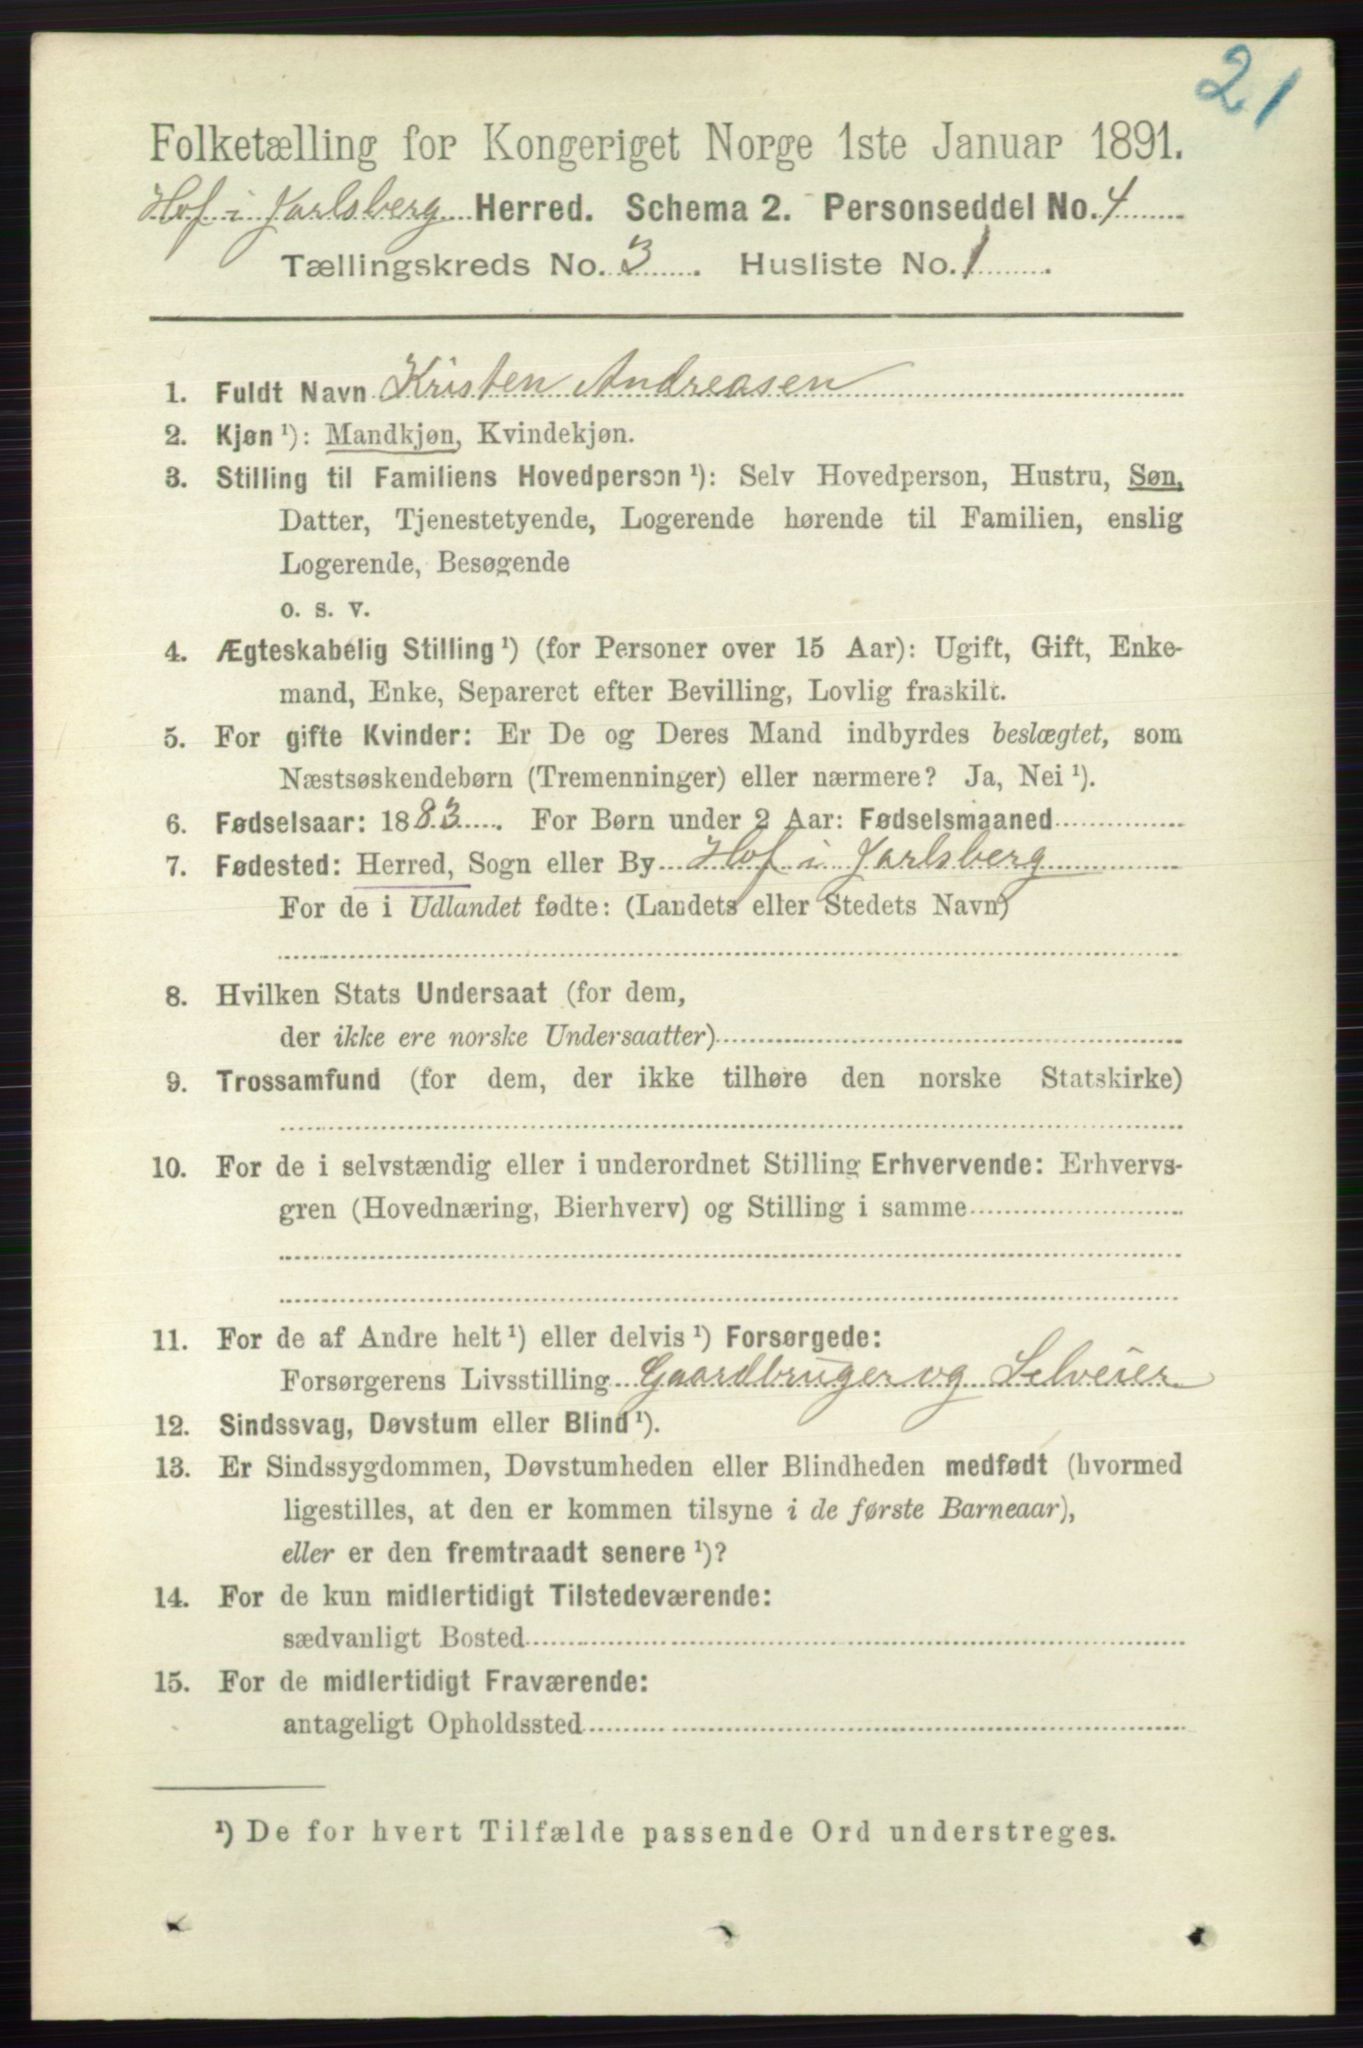 21
Folketælling for Kongeriget Norge 1ste Januar 1891.
Hof i Jarlsberg Herred. Schema 2. Personseddel No. 4
Tællingskreds No. 3. Husliste No. 1.
1. Fuldt Navn Kristen Andreasen
2. Kjøn ¹): Mandkjøn, Kvindekjøn.
3. Stilling til Familiens Hovedperson ¹): Selv Hovedperson, Hustru, Søn,
Datter, Tjenestetyende, Logerende hørende til Familien, enslig
Logerende, Besøgende
o. s. v.
4. Ægteskabelig Stilling ¹) (for Personer over 15 Aar): Ugift, Gift, Enke-
mand, Enke, Separeret efter Bevilling, Lovlig fraskilt.
5. For gifte Kvinder: Er De og Deres Mand indbyrdes beslægtet, som
Næstsøskendebørn (Tremenninger) eller nærmere? Ja, Nei ¹).
6. Fødselsaar: 1883. For Børn under 2 Aar: Fødselsmaaned
7. Fødested: Herred, Sogn eller By Hof i Jarlsberg
For de i Udlandet fødte: (Landets eller Stedets Navn)
8. Hvilken Stats Undersaat (for dem,
der ikke ere norske Undersaatter)
9. Trossamfund (for dem, der ikke tilhøre den norske Statskirke)
10. For de i selvstændig eller i underordnet Stilling Erhvervende: Erhvervs-
gren (Hovednæring, Bierhverv) og Stilling i samme
11. For de af Andre helt ¹) eller delvis ¹) Forsørgede:
Forsørgerens Livsstilling Gaardbruger og Selveier
12. Sindssvag, Døvstum eller Blind ¹).
13. Er Sindssygdommen, Døvstumheden eller Blindheden medfødt (hvormed
ligestilles, at den er kommen tilsyne i de første Barneaar),
eller er den fremtraadt senere ¹)?
14. For de kun midlertidigt Tilstedeværende:
sædvanligt Bosted
15. For de midlertidigt Fraværende:
antageligt Opholdssted
¹) De for hvert Tilfælde passende Ord understreges.